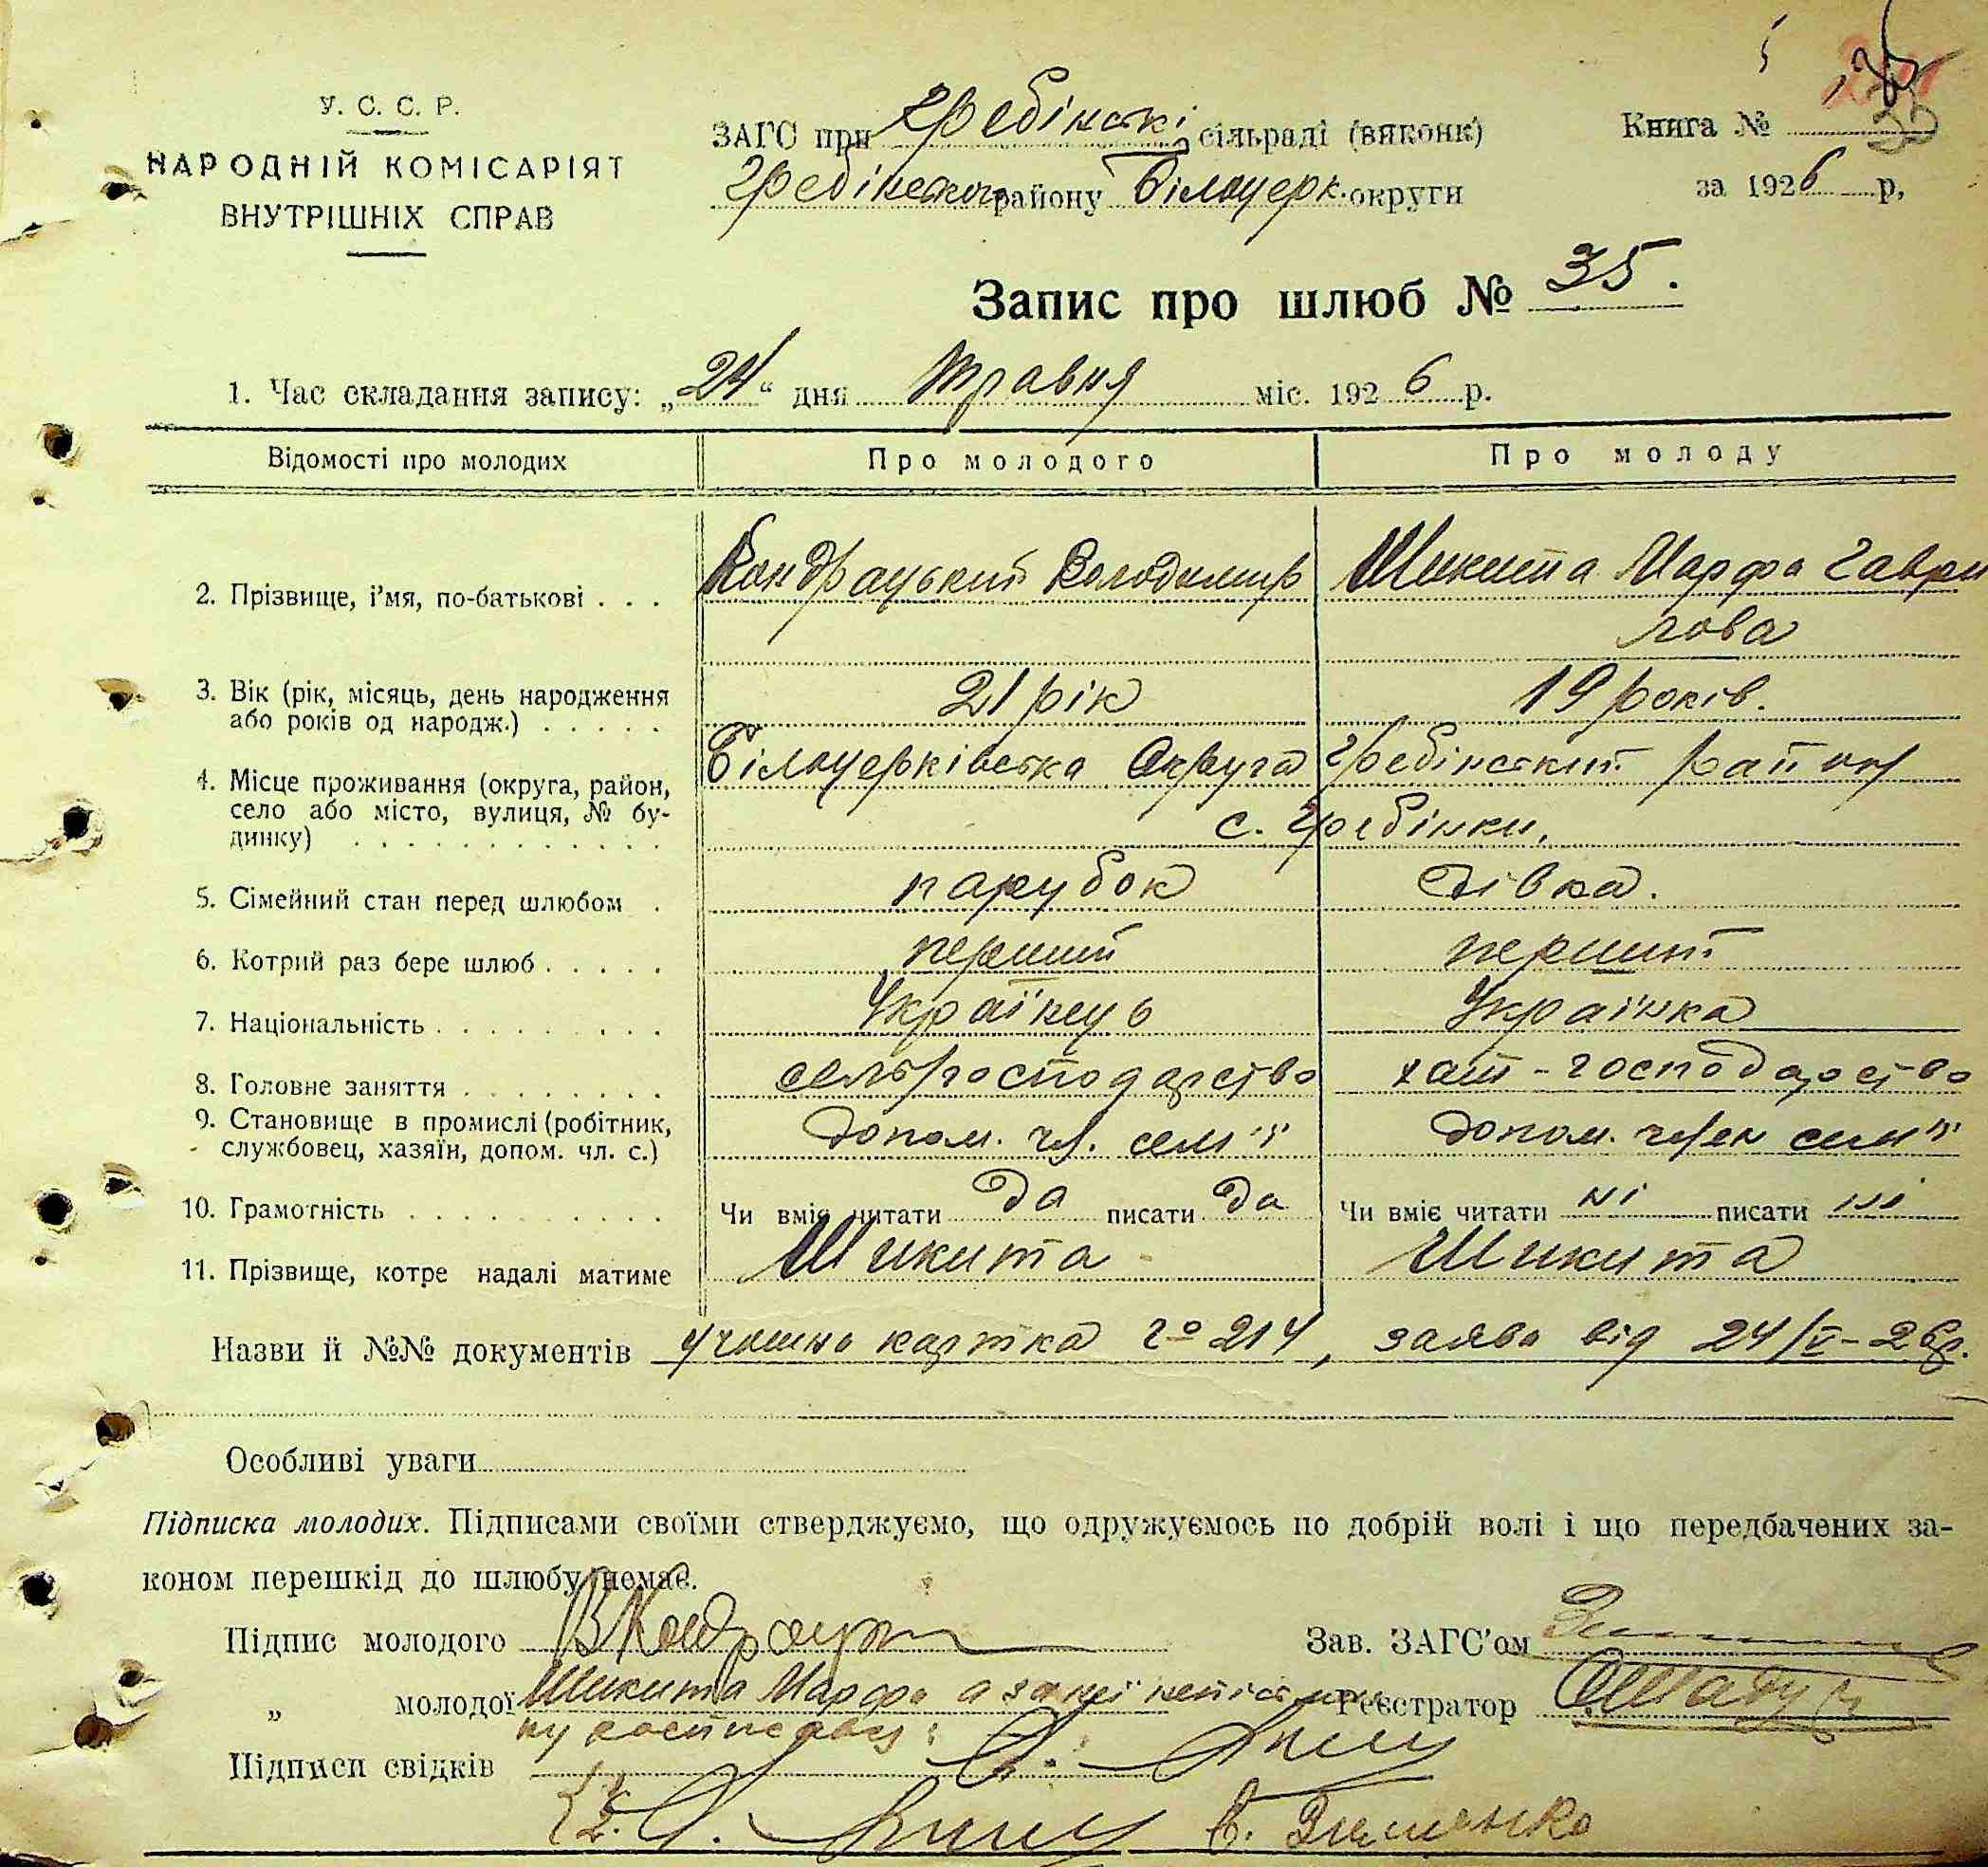 У. С. С. Р.
НАРОДНІЙ КОМІСАРІЯТ
ВНУТРІШНІХ СПРАВ
ЗАГС при Гребінській сільраді (виконк)
Гребінського району Білоцерк. округи
Книга №
за 1926 р,
Запис про шлюб № 35.
1. Час складання запису: „24“ дня травня міс. 1926 р.
Відомості про молодих Про молодого Про молоду
2. Прізвище, і’мя, по-батькові . . . Кондрацький Володимир Шикита Марфа Гаври
лова
3. Вік (рік, місяць, день народження
або років од народж.) . . . . . 21 рік 19 років.
4. Місце проживання (округа, район,
село або місто, вулиця, № бу-
динку) . . . . . . . . . . . .
Білоцерківська Округа Гребінський район
с. Гребінки,
5. Сімейний стан перед шлюбом . парубок дівка.
6. Котрий раз бере шлюб . . . . . перший перший
7. Національність . . . . . . . . . Українець Українка
8. Головне заняття . . . . . . . . сельгосподарство хат-господарство
9. Становище в промислі (робітник,
службовец, хазяїн, допом. чл. с.) допом. чл. сем'ї допом. член сем'ї
10. Грамотність . . . . . . . . . . Чи вміє читати да писати да Чи вміє читати ні писати ні
11. Прізвище, котре надалі матиме Шикита Шикита
Назви й №№ документів картка 214, заява від 24/V-26р.
Особливі уваги
Підписка молодих. Підписами своїми стверджуємо, що одружуємось по добрій волі і що передбачених за-
коном перешкід до шлюбу немає.
Підпис молодого
Зав. ЗАГС’ом
„ молодої Шикита Марфа а за неї
Реєстратор
Підписи свідків